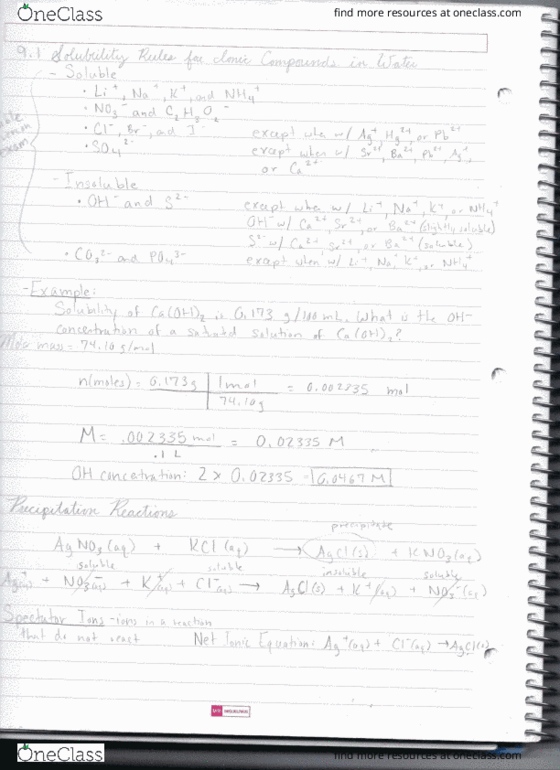 OneClass
find more resources at oneclass.com
9.1 Solubility Rules for Ionic Compounds in Water
- Soluble
• Li⁺, Na⁺, K⁺, and NH₄⁺
• NO₃⁻ and C₂H₃O₂⁻
• Cl⁻, Br⁻, and I⁻ except when w/ Ag⁺, Hg₂²⁺, or Pb²⁺
• SO₄²⁻ except when w/ Sr²⁺, Ba²⁺, Pb²⁺, Ag⁺,
or Ca²⁺
exam
- Insoluble
• OH⁻ and S²⁻ except when w/ Li⁺, Na⁺, K⁺, or NH₄⁺
OH⁻ w/ Ca²⁺, Sr²⁺, or Ba²⁺ (slightly soluble)
S²⁻ w/ Ca²⁺, Sr²⁺, or Ba²⁺ (soluble)
• CO₃²⁻ and PO₄³⁻ except when w/ Li⁺, Na⁺, K⁺, or NH₄⁺
- Example:
Solubility of Ca(OH)₂ is 0.173 g/100 mL. What is the OH⁻
concentration of a solution of Ca(OH)₂?
Molar mass = 74.10 g/mol
n(moles) = 0.173g | 1 mol = 0.002335 mol
74.10g
M = .002335 mol = 0.02335 M
.1 L
OH concentration: 2 x 0.02335 = 0.0467 M
Precipitation Reactions
precipitate
AgNO₃(aq) + KCl(aq) → AgCl(s) + KNO₃(aq)
soluble soluble insoluble soluble
Ag⁺(aq) + NO₃⁻(aq) + K⁺(aq) + Cl⁻(aq) → AgCl(s) + K⁺(aq) + NO₃⁻(aq)
Spectator Ions - ions in a reaction
that do not react Net Ionic Equation: Ag⁺(aq) + Cl⁻(aq) → AgCl(s)
OneClass
find more resources at oneclass.com